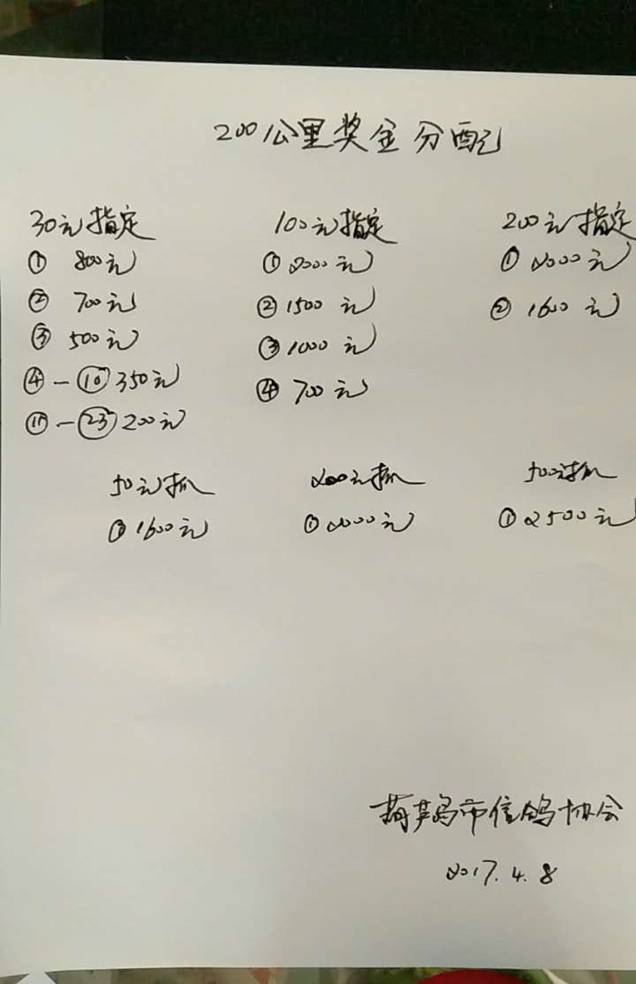 200公里奖金分配
30元指定 100元指定 200元指定
① 800元 ① 2000元 ① 2000元
② 700元 ② 1500元 ② 1600元
③ 500元 ③ 1000元
④-⑩ 350元 ④ 700元
⑪-㉓ 200元
50元抓 200元抓 500元抓
① 1600元 ① 2000元 ① 2500元
葫芦岛市信鸽协会
2017.4.8